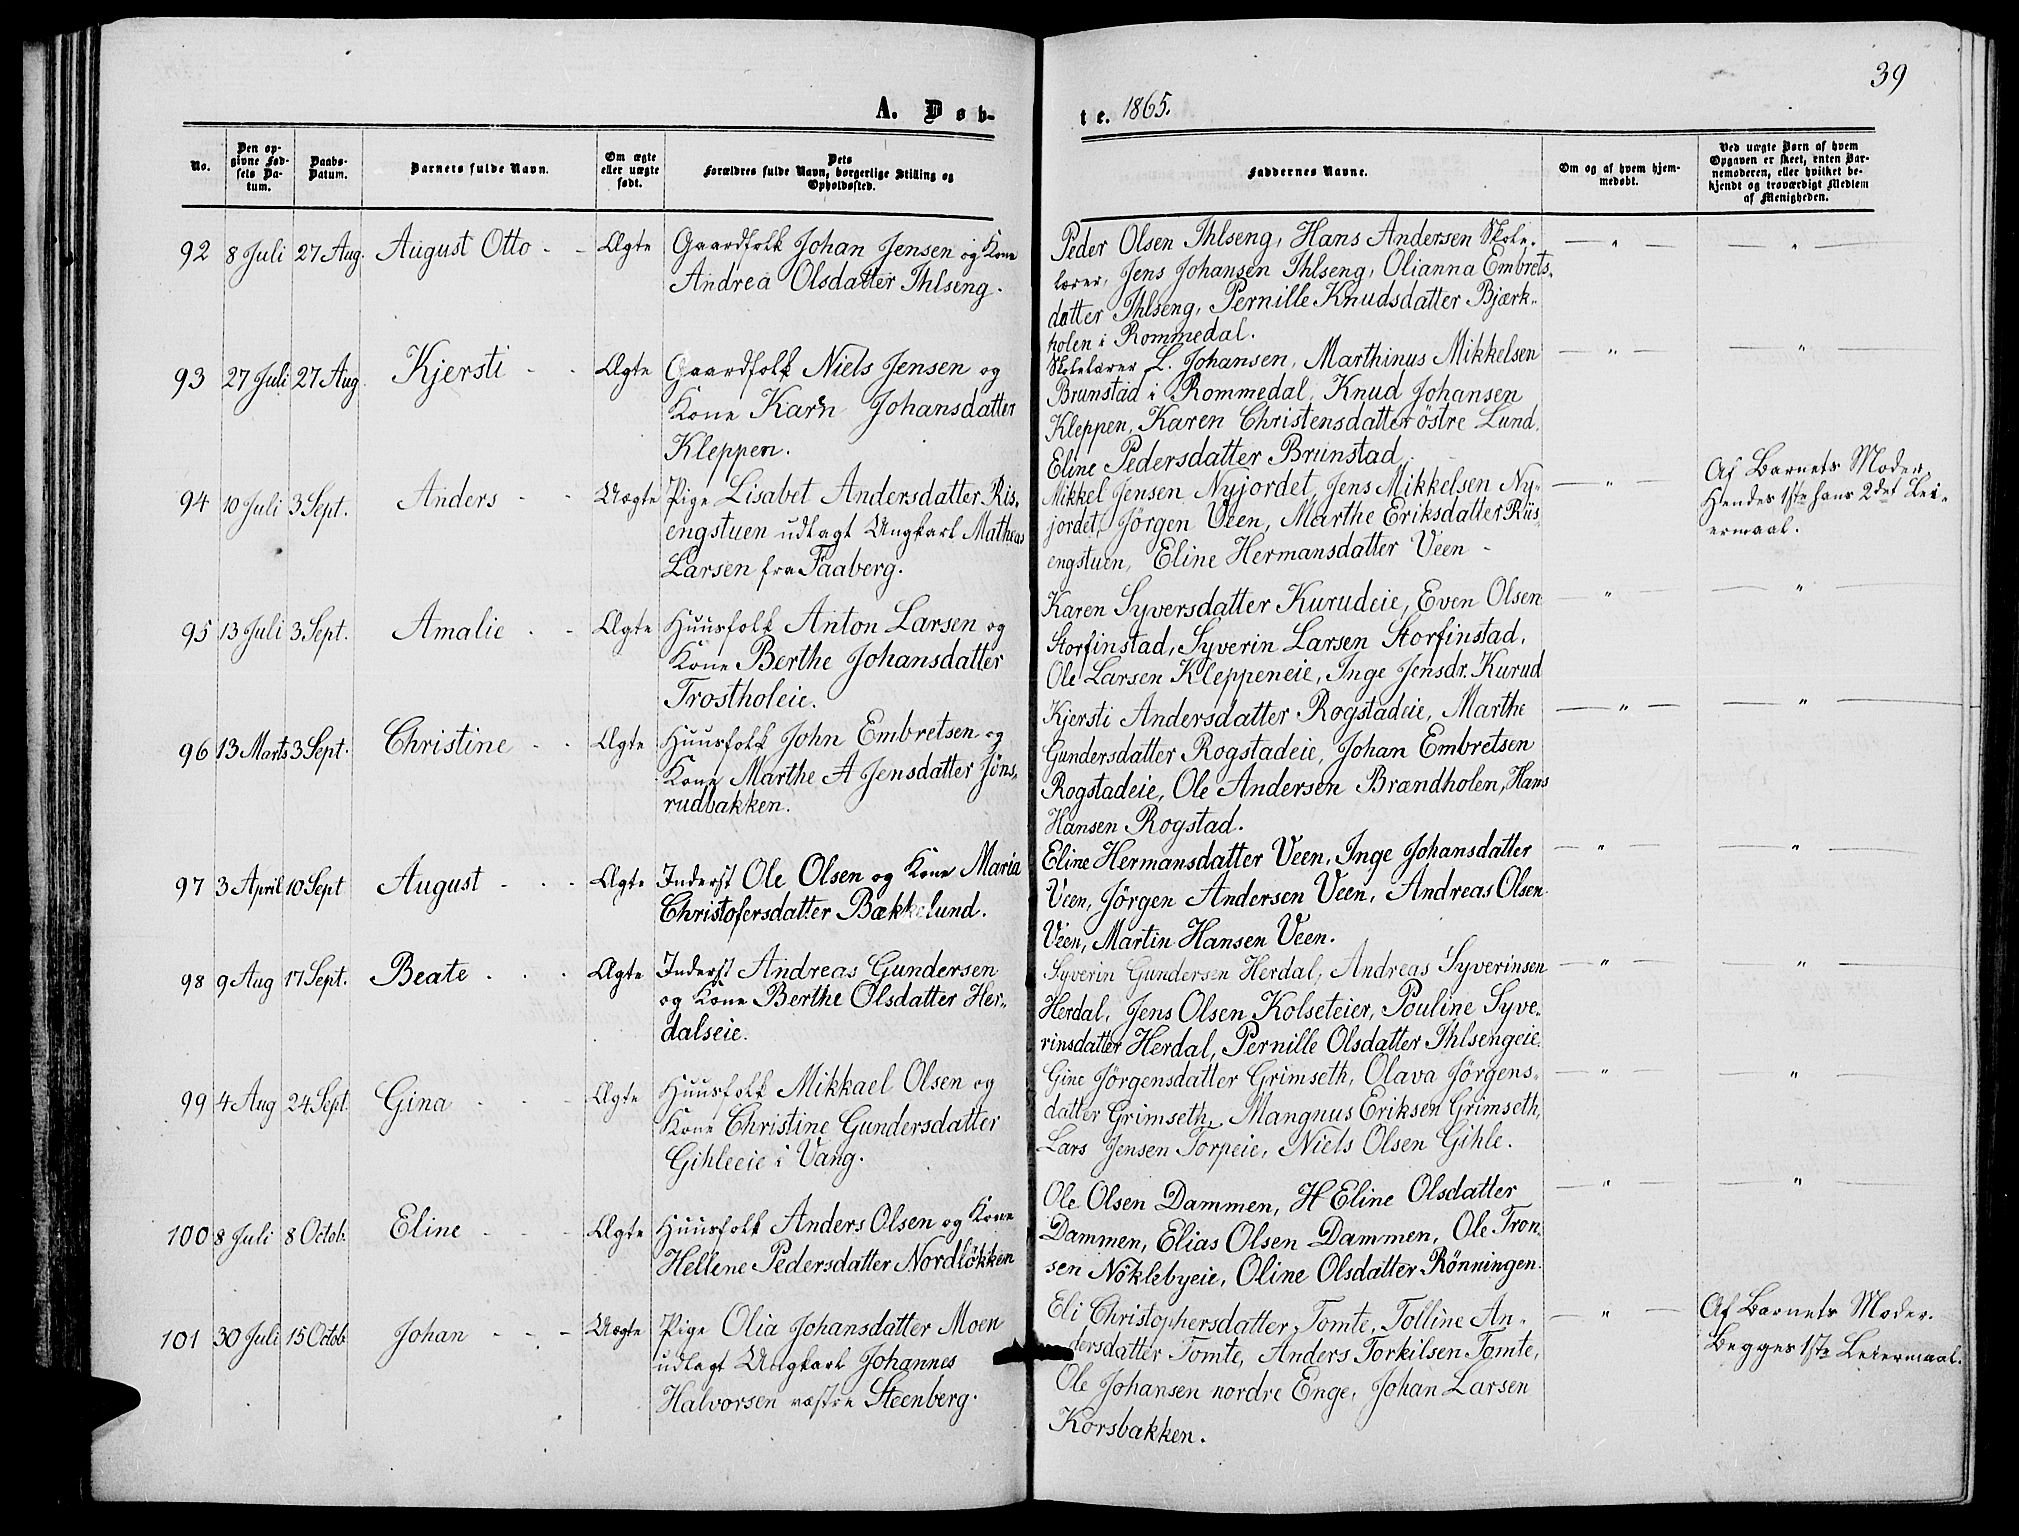 39
A. Døb-
te. 1865.
No.
Den op-
givne Fød-
sels Da-
tum.
Daabs-
Datum.
Barnets fulde Navn.
Om ægte
eller uægte
født.
Dets
Forældres fulde Navn, borgerlige Stilling og
Opholdssted.
Faddernes Navne.
Om og af hvem hjem-
medøbt.
Ved uægte Børn af hvem
Opgaven er skeet, enten Bar-
nemoderen, eller hvilket be-
kjendt og troværdigt Medlem
af Menigheden.
92 8 Juli 27 Aug. August Otto - - Ægte Gaardfolk Johan Jensen og Kone
Andrea Olsdatter Ihlseng.
Peder Olsen Ihlseng, Hans Andersen Skole-
lærer, Jens Johansen Ihlseng, Olianna Embrets-
datter Ihlseng, Pernille Knudsdatter Bjærk-
holen i Rommedal.
93 27 Juli 27 Aug. Kjersti - - Ægte Gaardfolk Niels Jensen og
Kone Karn Johansdatter
Kleppen.
Skolelærer L. Johansen, Marthinus Mikkelsen
Brunstad i Rommedal, Knud Johansen
Kleppen, Karen Christensdatter östre Lund,
Eline Pedersdatter Brunstad
94 10 Juli 3 Sept. Anders - - Uægte Pige Lisabet Andersdatter Ris-
engstuen udlagt Ungkarl Mathias
Larsen fra Faaberg.
Mikkel Jensen Nyjordet, Jens Mikkelsen Ny-
jordet, Jörgen Veen, Marthe Eriksdatter Riis-
engstuen, Eline Hermansdatter Veen -
Af Barnets Moder.
Hendes 1ste hans 2det Lei-
ermaal.
95 13 Juli 3 Sept. Amalie - - Ægte Huusfolk Anton Larsen og
Kone Berthe Johansdatter
Trostholeie.
Karen Syversdatter Kurudeie, Even Olsen
Storfinstad, Syverin Larsen Storfinstad,
Ole Larsen Kleppeneie, Inge Jensdr. Kurud
96 13 Marts 3 Sept. Christine - - Ægte Huusfolk John Embretsen og
Kone Marthe A Jensdatter Jöns-
rudbakken.
Kjersti Andersdatter Rogstadeie, Marthe
Gundersdatter Rogstadeie, Johan Embretsen
Rogstadeie, Ole Andersen Brandholen, Hans
Hansen Rogstad.
97 3 April 10 Sept August - - - Ægte Inderst Ole Olsen og Kone Maria
Christofersdatter Bækkelund.
Eline Hermansdatter Veen, Inge Johansdatter
Veen, Jörgen Andersen Veen, Andreas Olsen
Veen, Martin Hansen Veen.
98 9 Aug 17 Sept. Beate - - - Ægte Inderst Andreas Gundersen
og Kone Berthe Olsdatter Her-
dalseie.
Syverin Gundersen Herdal, Andreas Syverinsen
Herdal, Jens Olsen Kolseteier, Pouline Syve-
rinsdatter Herdal, Pernille Olsdatter Ihlsengeie.
99 4 Aug 24 Sept. Gina - - - Ægte Huusfolk Mikkael Olsen og
Kone Christine Gundersdatter
Gihleeie i Vang.
Gine Jörgensdatter Grimseth, Olava Jörgens-
datter Grimseth, Mangnus Eriksen Grimseth,
Lars Jensen Torpeie, Niels Olsen Gihle.
100 8 Juli 8 Octob. Eline - - - Ægte Huusfolk Anders Olsen og Kone
Hellene Pedersdatter Nordlökken
Ole Olsen Dammen, H Eline Olsdatter
Dammen, Elias Olsen Dammen, Ole Tron-
sen Nöklebyeie, Oline Olsdatter Rönningen.
101 30 Juli 15 Octob Johan - - - Uægte Pige Olia Johansdatter Moen
udlagt Ungkarl Johannes
Halvorsen vestre Steenberg.
Eli Christophersdatter Tomte, Tolline An-
dersdatter Tomte, Anders Torkilsen Tomte,
Ole Johansen nordre Enge, Johan Larsen
Korsbakken.
Af Barnets Moder.
Begges 1ste Leiermaal.